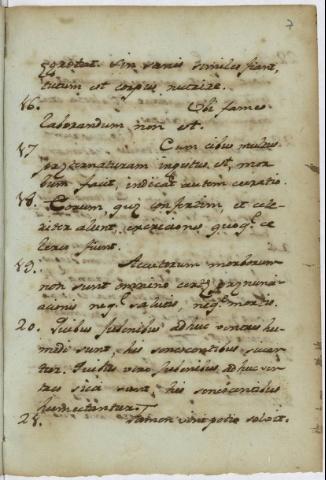 7
egrotat. Sin sanis similes fiant,
tutum est corpus nutrire.
16. Ubi fames
laborandum non est.
17 Cum cibus multus
præter naturam ingestus est, mor-
bum facit, indicat autem curatio.
18. Eorum, quæ confertim, et cele-
riter alunt, excreciones quoq; ce
leres fiunt.
19. Accutorum morborum
non sunt omnino certæ prænunci-
ationis neq; salutis, neq; mortis.
20. Quibus juvenibus adhuc ventres hu-
midi sunt, his senescentibus siccan-
tur. Quibus vero juvenibus adhuc ven-
tres sicci sunt, his senescentibus
humectantur.
21. Famem vini potio solvit.